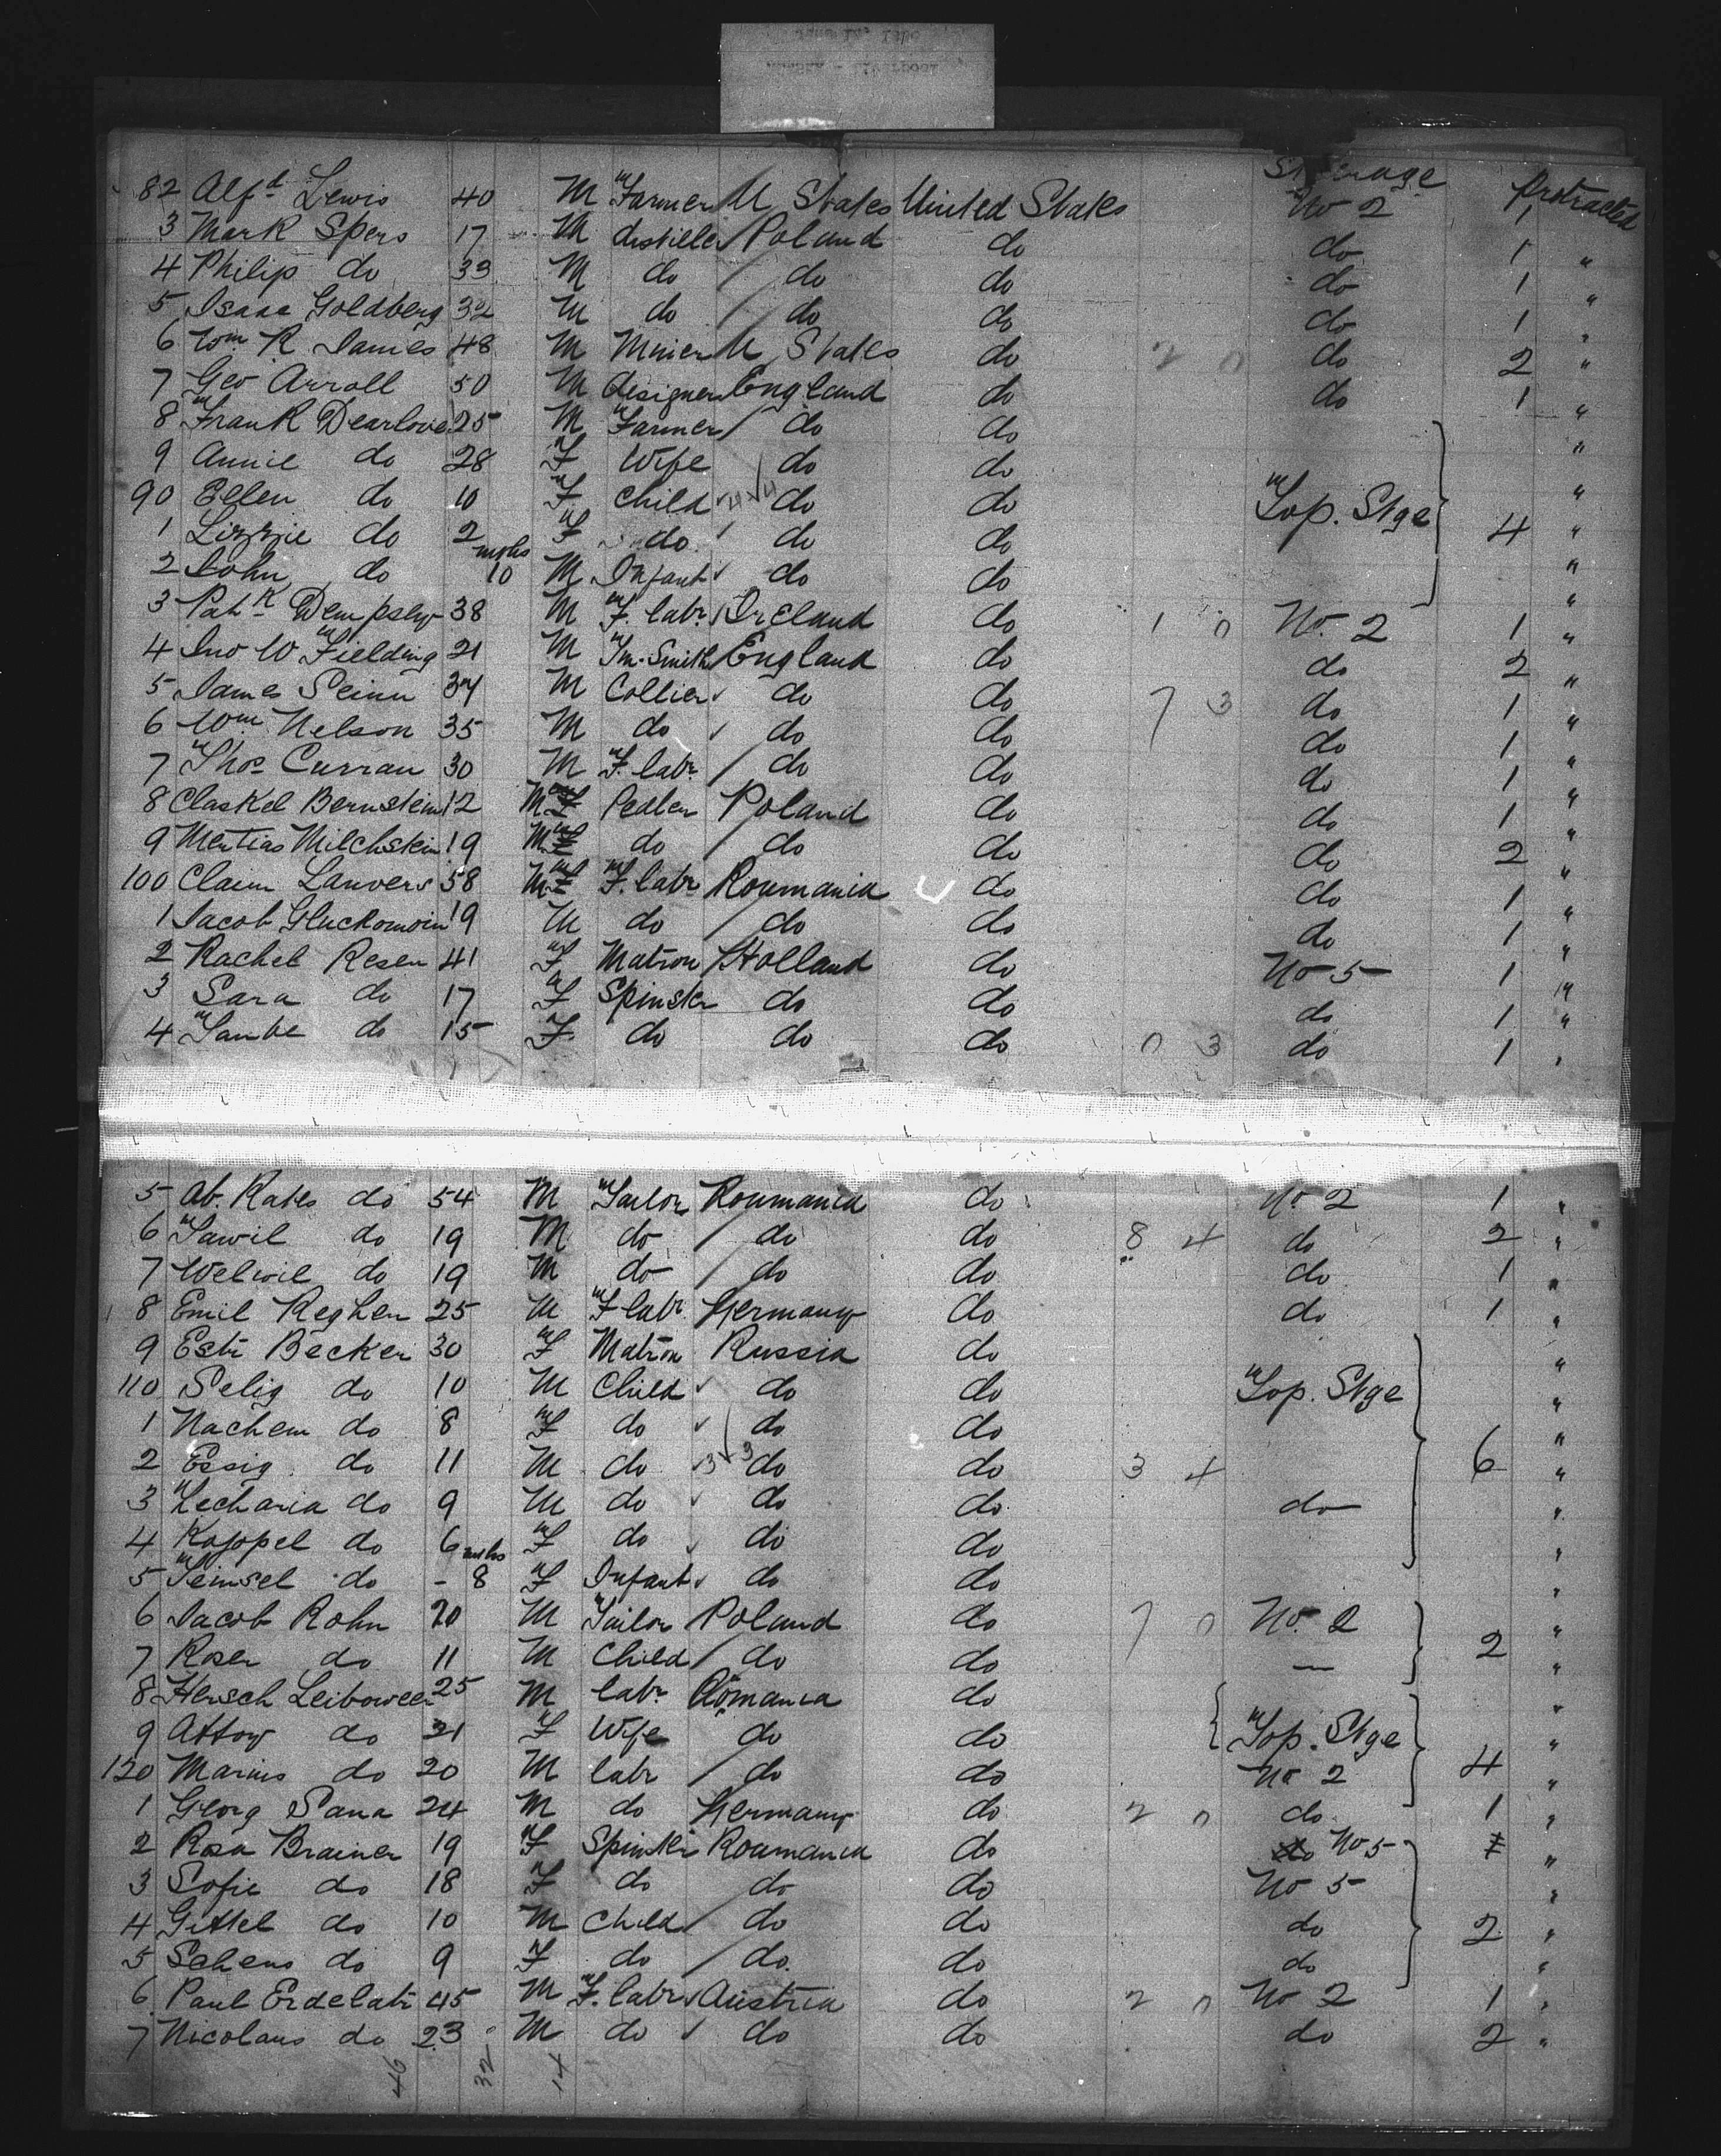 Steerage
82 Alfd Lewis 40 M Farmer U States United States No 2 1 Protracted
3 Mark Spero 17 M distiller Poland do do 1 "
4 Philip do 33 M do do do do 1 "
5 Isaac Goldberg 32 M do do do do 1 "
6 Wm R James 48 M Miner U States do 2 0 do 2 "
7 Geo Arroll 50 M designer England do do 1 "
8 Frank Dearlove 25 M Farmer do do "
9 Annie do 28 F Wife do do "
90 Ellen do 10 F Child do do Fop. Stge 4 "
1 Lizzie do 2 F do do do "
2 John do mths 10 M Infant do do "
3 Patk Dempsey 38 M F. labr Ireland do 1 0 No. 2 1 "
4 Jno W Fielding 21 M Tm. Smith England do do 2 "
5 James Seinn 34 M Collier do do 7 3 do 1 "
6 Wm Nelson 35 M do do do do 1 "
7 Thos Curran 30 M F. labr do do do 1 "
8 Claskel Bernstein 12 M Pedler Poland do do 1 "
9 Mertias Milchstein 19 M do do do do 2 "
100 Claim Lauvers 58 M F. labr Roumania do do 1 "
1 Jacob Gluckomoin 19 M do do do do 1 "
2 Rachel Resen 41 F Matron Holland do No 5 1 "
3 Sara do 17 F Spinster do do do 1 "
4 Taube do 15 F do do do 0 3 do 1 "
5 Ab. Kates do 54 M Tailor Roumania do No 2 1 "
6 Tawil do 19 M do do do 8 4 do 2 "
7 Welwil do 19 M do do do do 1 "
8 Emil Reghen 25 M F labr Germany do do 1 "
9 Esti Becker 30 F Matron Russia do "
110 Selig do 10 M Child do do Fop. Stge "
1 Nachem do 8 F do do do "
2 Essig do 11 M do 3 3 do do 3 4 6 "
3 Zecharia do 9 M do do do do "
4 Koppel do 6 F do do do "
5 Teimsel do - mths 8 F Infant do do "
6 Jacob Rohn 20 M Tailor Poland do 7 0 No. 2 2 "
7 Rosen do 11 M Child do do — "
8 Hersch Leiboweer 25 M labr Romania do "
9 Attoy do 21 F Wife do do Fop. Stge "
120 Marius do 20 M labr do do No 2 4 "
1 Georg Sana 24 M do Germany do 2 0 do 1 "
2 Rosa Brainer 19 F Spinster Roumania do do No 5 "
3 Sofie do 18 F do do do No 5 "
4 Gittel do 10 M Child do do do 2 "
5 Schens do 9 F do do. do do "
6 Paul Erdelati 45 M F. labr Austria do 2 0 No 2 1 "
7 Nicolaus do 23 M do do do do 2 "
46 32 14